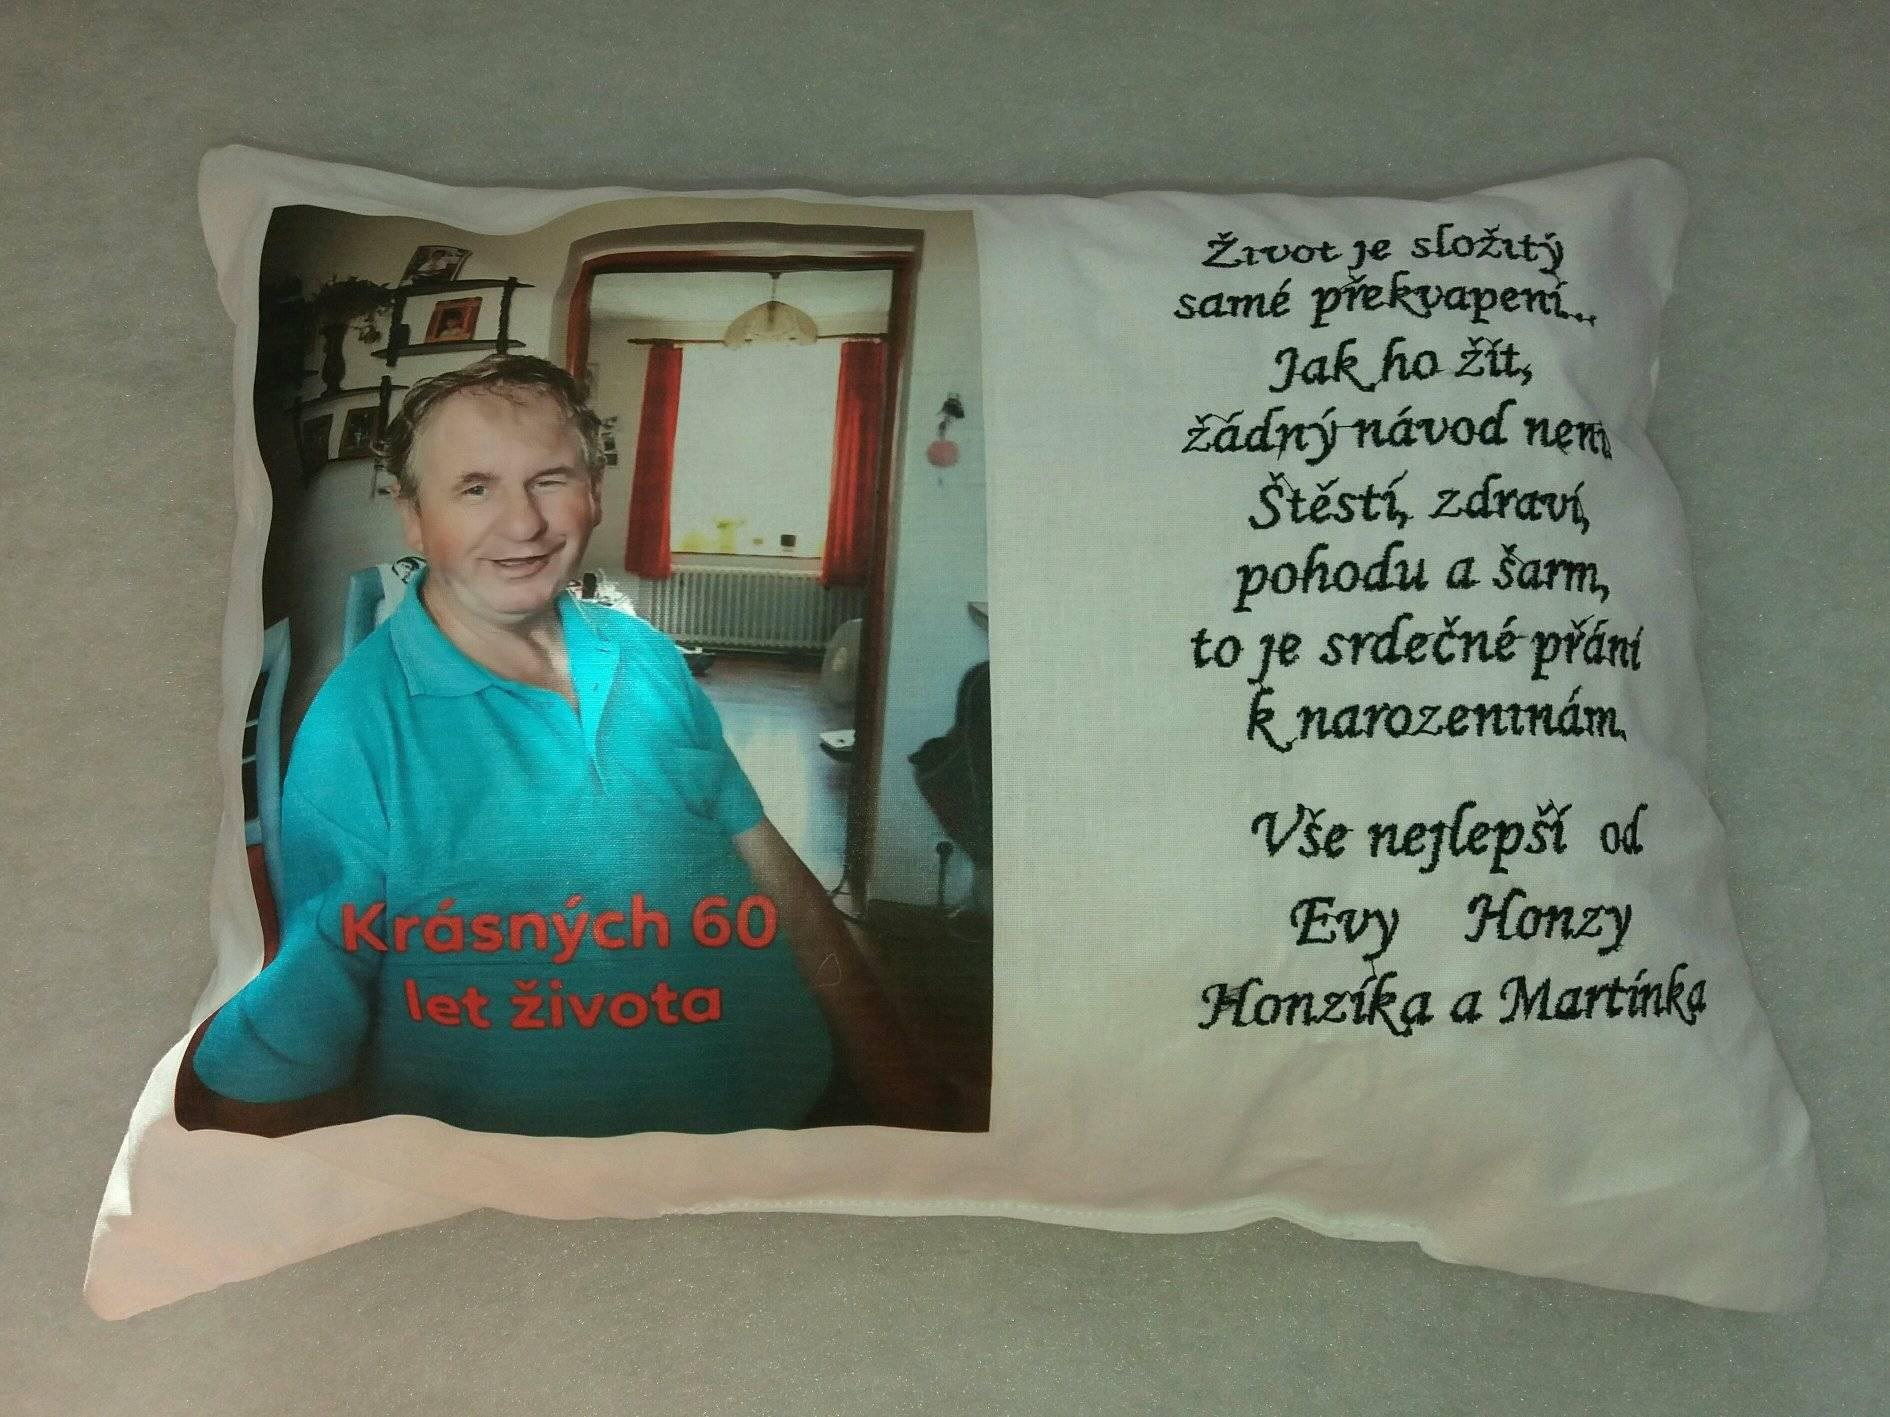 Krásných 60
let života
Život je složitý
samé překvapení...
Jak ho žít,
žádný návod není
Štěstí, zdraví,
pohodu a šarm,
to je srdečné přání
k narozeninám.
Vše nejlepší od
Evy Honzy
Honzíka a Martínka